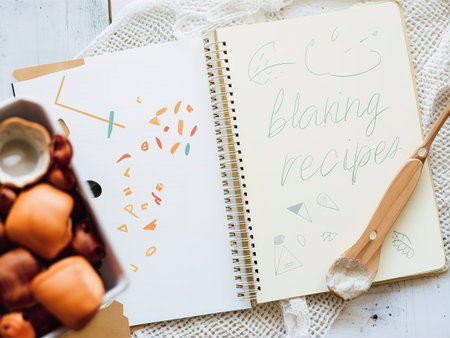 blaking
recipes